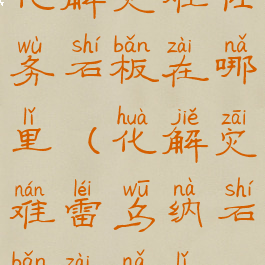 化解灾难任
wù shí bǎn zài nǎ
务石板在哪
lǐ huà jiě zāi
里(化解灾
nán léi wū nà shí
难雷乌纳石
bǎn zài nǎ lǐ